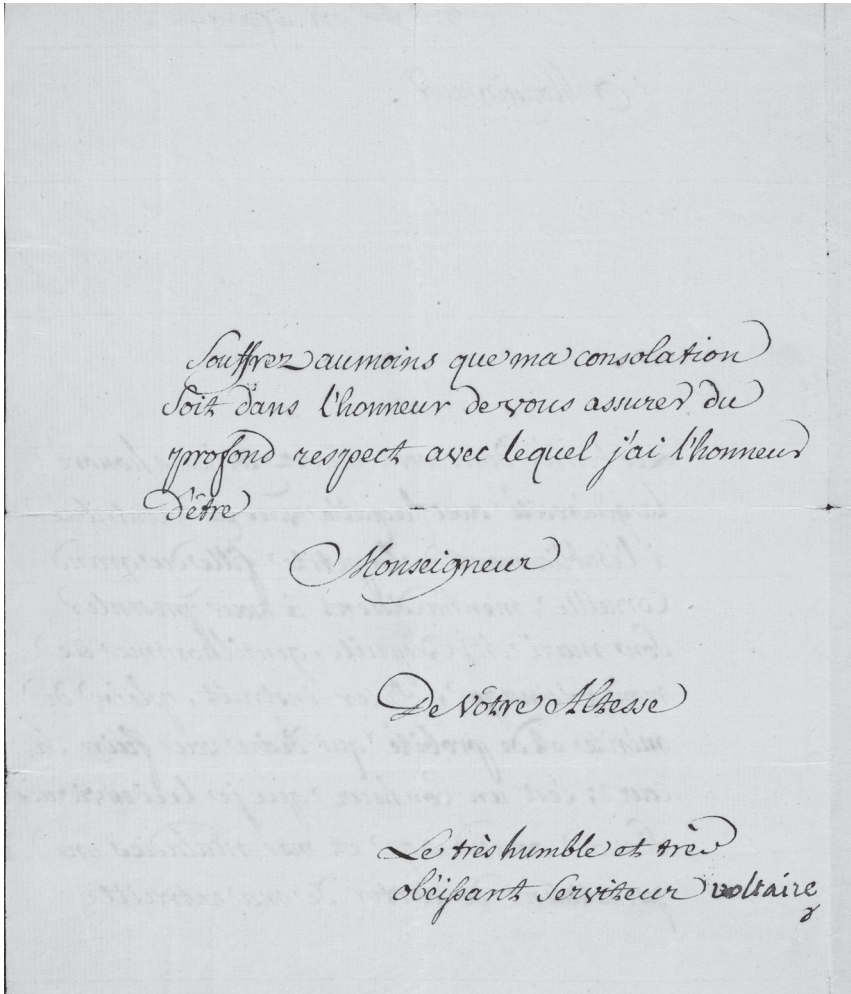 Souffrez aumoins que ma consolation
soit dans l'honneur de vous assurer du
profond respect avec lequel j'ai l'honneur
d'être
Monseigneur
De vôtre Altesse
Le très humble et très
obéissant serviteur voltaire